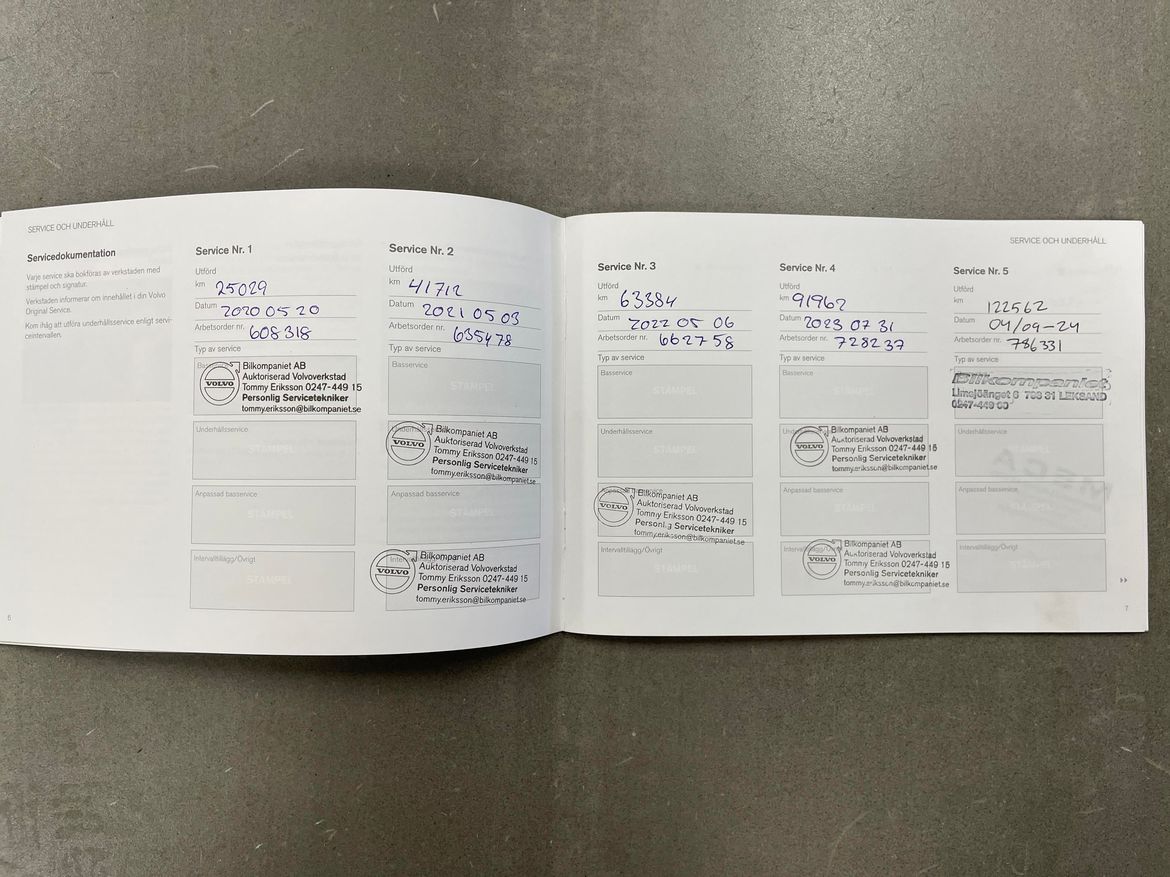 SERVICE OCH UNDERHÅLL
Servicedokumentation
Varje service ska bokföras av verkstaden med
stämpel och signatur.
Verkstaden informerar om innehållet i din Volvo
Original Service.
Kom ihåg att utföra underhållsservice enligt servi-
ceintervallen.
6
Service Nr. 1
Utförd
km 25029
Datum 2020 05 20
Arbetsorder nr. 608318
Typ av service
VOLVO
Bilkompaniet AB
Auktoriserad Volvoverkstad
Tommy Eriksson 0247-449 15
Personlig Servicetekniker
tommy.eriksson@bilkompaniet.se
Underhållsservice
STÄMPEL
Anpassad basservice
STÄMPEL
Intervalltillägg/Övrigt
STÄMPEL
Service Nr. 2
Utförd
km 41712
Datum 2021 05 03
Arbetsorder nr. 635478
Typ av service
Basservice
STÄMPEL
VOLVO
Bilkompaniet AB
Auktoriserad Volvoverkstad
Tommy Eriksson 0247-449 15
Personlig Servicetekniker
tommy.eriksson@bilkompaniet.se
Anpassad basservice
STÄMPEL
VOLVO
Bilkompaniet AB
Auktoriserad Volvoverkstad
Tommy Eriksson 0247-449 15
Personlig Servicetekniker
tommy.eriksson@bilkompaniet.se
SERVICE OCH UNDERHÅLL
Service Nr. 3
Utförd
km 63384
Datum 2022 05 06
Arbetsorder nr. 662758
Typ av service
Basservice
STÄMPEL
Underhållsservice
STÄMPEL
VOLVO
Bilkompaniet AB
Auktoriserad Volvoverkstad
Tommy Eriksson 0247-449 15
Personlig Servicetekniker
tommy.eriksson@bilkompaniet.se
Intervalltillägg/Övrigt
STÄMPEL
Service Nr. 4
Utförd
km 91962
Datum 2023 07 31
Arbetsorder nr. 728237
Typ av service
Basservice
STÄMPEL
VOLVO
Bilkompaniet AB
Auktoriserad Volvoverkstad
Tommy Eriksson 0247-449 15
Personlig Servicetekniker
tommy.eriksson@bilkompaniet.se
Anpassad basservice
STÄMPEL
VOLVO
Bilkompaniet AB
Auktoriserad Volvoverkstad
Tommy Eriksson 0247-449 15
Personlig Servicetekniker
tommy.eriksson@bilkompaniet.se
Service Nr. 5
Utförd
km 122562
Datum 04/09-24
Arbetsorder nr. 786331
Typ av service
Bilkompaniet
Limsjöänget 6 793 31 LEKSAND
0247-449 00
Underhållsservice
STÄMPEL
Anpassad basservice
STÄMPEL
Intervalltillägg/Övrigt
STÄMPEL
7